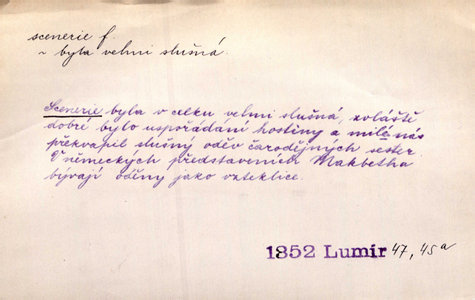 scenerie f.
~ byla velmi slušná.
Scenerie byla v celku velmi slušná, zvláště
dobré bylo uspořádání hostiny a milé nás
překvapil slušný oděv čarodějných sester
V německých představeních Makbetha
bývají oděny jako vzteklice.
1852 Lumír 47, 45a